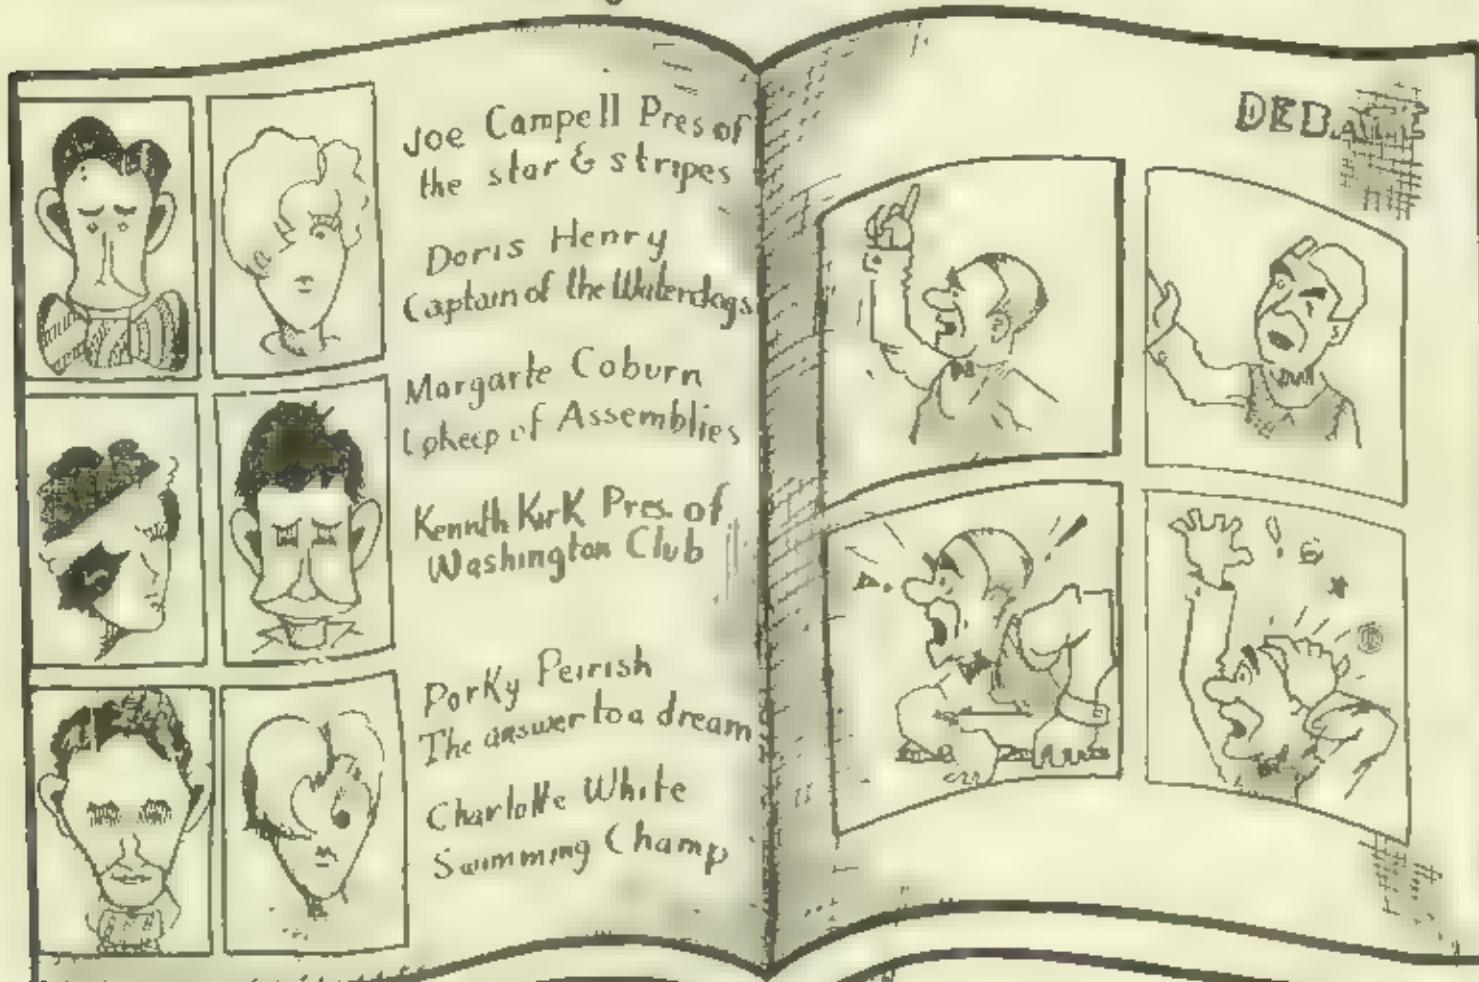 Joe Campell Pres of
the star & stripes
Doris Henry
Captain of the Waterdogs
Margarte Coburn
Upkeep of Assemblies
Kennth Kirk Pres. of
Washington Club
Porky Peirish
The answer to a dream
Charlotte White
Swimming Champ
DEBATE